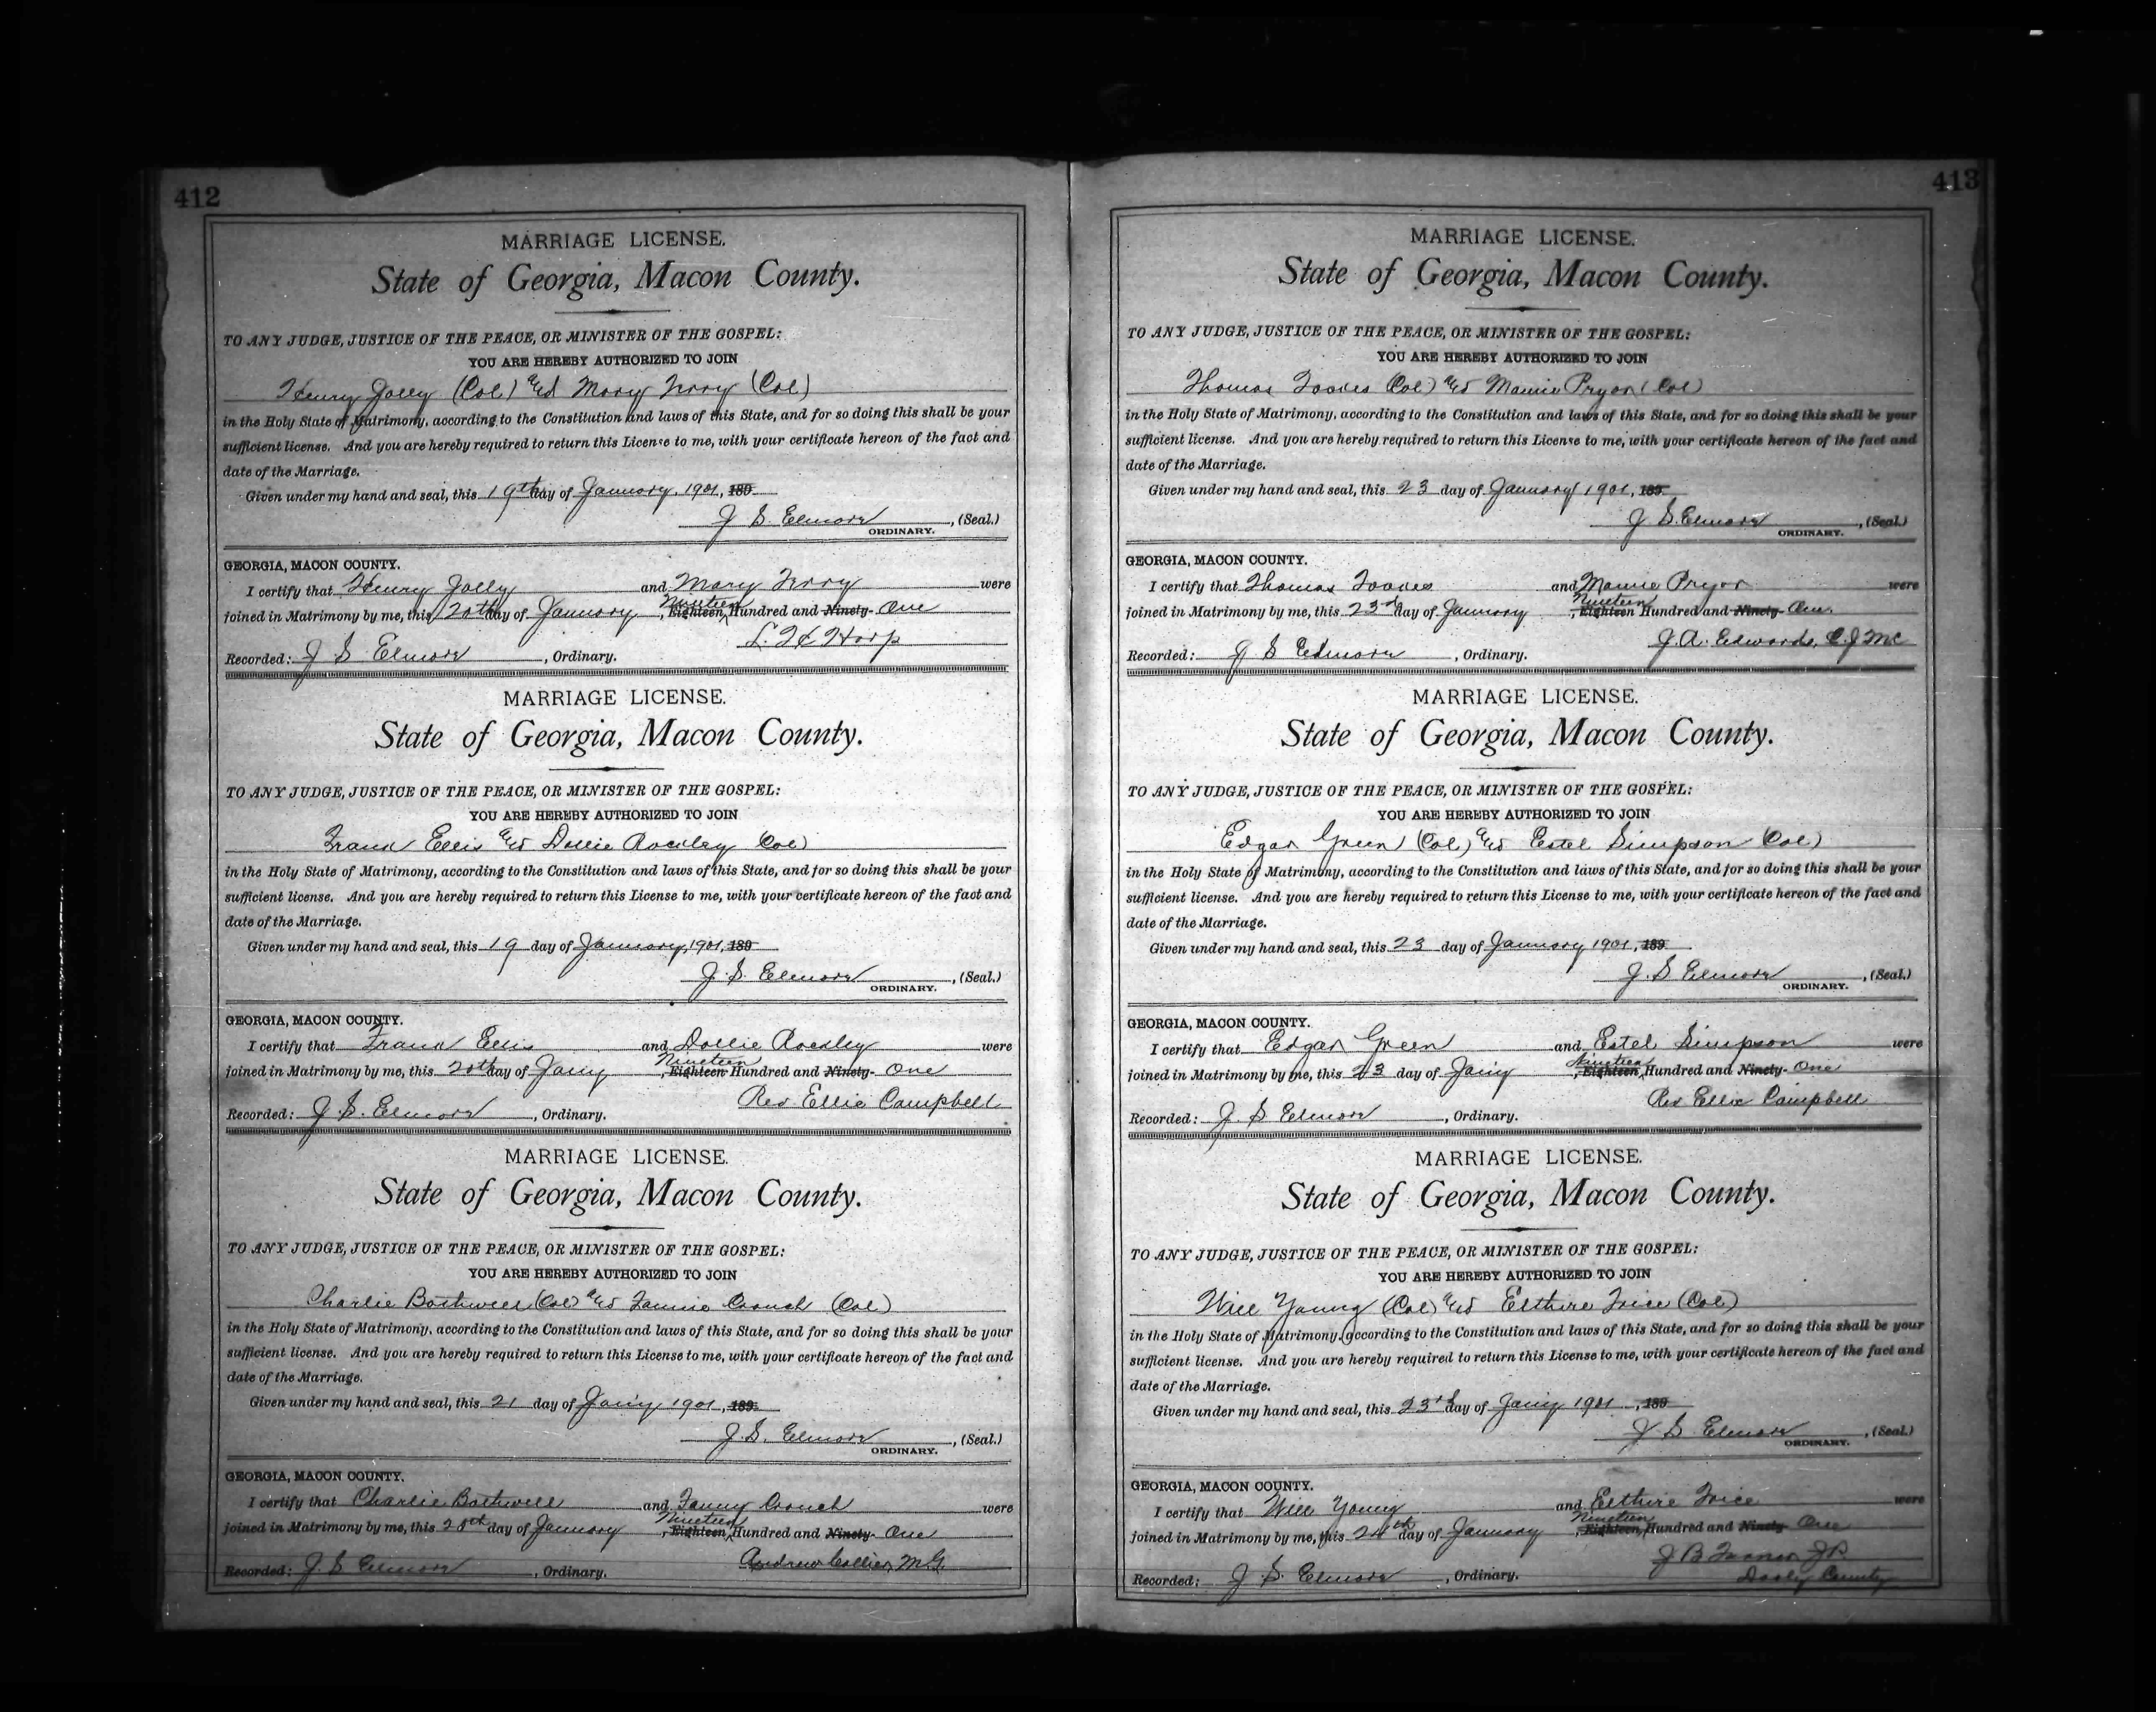 412
MARRIAGE LICENSE.
State of Georgia, Macon County.
TO ANY JUDGE, JUSTICE OF THE PEACE, OR MINISTER OF THE GOSPEL:
YOU ARE HEREBY AUTHORIZED TO JOIN
Henry Jolly (Col) and Mary (Col)
in the Holy State of Matrimony, according to the Constitution and laws of this State, and for so doing this shall be your
sufficient license. And you are hereby required to return this License to me, with your certificate hereon of the fact and
date of the Marriage.
Given under my hand and seal, this 19th day of January, 1901, 189
J S Elmore , (Seal.)
ORDINARY.
GEORGIA, MACON COUNTY.
I certify that Henry Jolly and Mary were
Nineteen
joined in Matrimony by me, this 20th day of January , Eighteen Hundred and Ninety- One
Recorded: J S Elmore , Ordinary.
MARRIAGE LICENSE.
State of Georgia, Macon County.
TO ANY JUDGE, JUSTICE OF THE PEACE, OR MINISTER OF THE GOSPEL:
YOU ARE HEREBY AUTHORIZED TO JOIN
Frank Ellis and Dollie (Col)
in the Holy State of Matrimony, according to the Constitution and laws of this State, and for so doing this shall be your
sufficient license. And you are hereby required to return this License to me, with your certificate hereon of the fact and
date of the Marriage.
Given under my hand and seal, this 19 day of January, 1901, 189
J. S. Elmore , (Seal.)
ORDINARY.
GEORGIA, MACON COUNTY.
I certify that Frank Ellis and Dollie were
Nineteen
joined in Matrimony by me, this 20th day of Jany , Eighteen Hundred and Ninety- One
Rev. Ellie Campbell
Recorded: J. S. Elmore , Ordinary.
MARRIAGE LICENSE.
State of Georgia, Macon County.
TO ANY JUDGE, JUSTICE OF THE PEACE, OR MINISTER OF THE GOSPEL:
YOU ARE HEREBY AUTHORIZED TO JOIN
Charlie Bothwell (Col) and Fannie Crouch (Col)
in the Holy State of Matrimony, according to the Constitution and laws of this State, and for so doing this shall be your
sufficient license. And you are hereby required to return this License to me, with your certificate hereon of the fact and
date of the Marriage.
Given under my hand and seal, this 21 day of Jany 1901, 189
J. S. Elmore , (Seal.)
ORDINARY.
GEORGIA, MACON COUNTY.
I certify that Charlie Bothwell and Fanny Crouch were
Nineteen
joined in Matrimony by me, this 28th day of January , Eighteen Hundred and Ninety- One
Andrew Collier, M.G.
Recorded: J. S. Elmore , Ordinary.
413
MARRIAGE LICENSE.
State of Georgia, Macon County.
TO ANY JUDGE, JUSTICE OF THE PEACE, OR MINISTER OF THE GOSPEL:
YOU ARE HEREBY AUTHORIZED TO JOIN
Thomas (Col) and Mamie Pryor (Col)
in the Holy State of Matrimony, according to the Constitution and laws of this State, and for so doing this shall be your
sufficient license. And you are hereby required to return this License to me, with your certificate hereon of the fact and
date of the Marriage.
Given under my hand and seal, this 23 day of January 1901, 189
J. S. Elmore , (Seal.)
ORDINARY.
GEORGIA, MACON COUNTY.
I certify that Thomas and Mamie Pryor were
Nineteen
joined in Matrimony by me, this 23d day of January , Eighteen Hundred and Ninety- One
J. A. Edwards,
Recorded: J S Elmore , Ordinary.
MARRIAGE LICENSE.
State of Georgia, Macon County.
TO ANY JUDGE, JUSTICE OF THE PEACE, OR MINISTER OF THE GOSPEL:
YOU ARE HEREBY AUTHORIZED TO JOIN
Edgar Green (Col) and Estel Simpson (Col)
in the Holy State of Matrimony, according to the Constitution and laws of this State, and for so doing this shall be your
sufficient license. And you are hereby required to return this License to me, with your certificate hereon of the fact and
date of the Marriage.
Given under my hand and seal, this 23 day of January 1901, 189
J. S Elmore , (Seal.)
ORDINARY.
GEORGIA, MACON COUNTY.
I certify that Edgar Green and Estel Simpson were
Nineteen
joined in Matrimony by me, this 23 day of Jany , Eighteen Hundred and Ninety- One
Rev Ellie Campbell
Recorded: J. S Elmore , Ordinary.
MARRIAGE LICENSE.
State of Georgia, Macon County.
TO ANY JUDGE, JUSTICE OF THE PEACE, OR MINISTER OF THE GOSPEL:
YOU ARE HEREBY AUTHORIZED TO JOIN
Will Young (Col) and Elthire Trice (Col)
in the Holy State of Matrimony, according to the Constitution and laws of this State, and for so doing this shall be your
sufficient license. And you are hereby required to return this License to me, with your certificate hereon of the fact and
date of the Marriage.
Given under my hand and seal, this 23rd day of Jany 1901 , 189
J S Elmore , (Seal.)
ORDINARY.
GEORGIA, MACON COUNTY.
I certify that Will Young and Elthire Trice were
Nineteen
joined in Matrimony by me, this 24th day of January , Eighteen Hundred and Ninety- One
J B JP.
Dooly County
Recorded: J. S. Elmore , Ordinary.